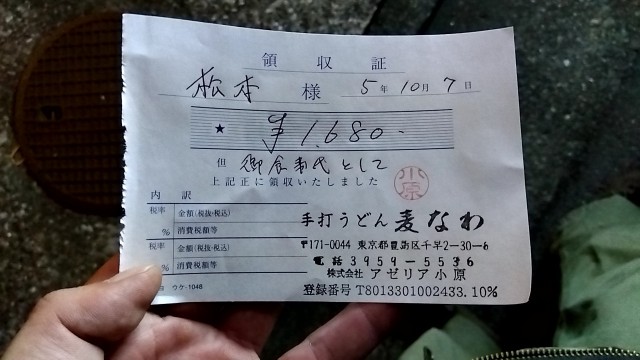 領収証
松本 様 5年10月7日
★ ¥1,680-
但 御食事代として
上記正に領収いたしました
小原
内訳
税率 金額(税抜・税込)
% 消費税額等
税率 金額(税抜・税込)
% 消費税額等
ウケ-1048
手打うどん 麦なわ
〒171-0044 東京都豊島区千早2-30-6
電話 3959-5536
株式会社 アゼリア小原
登録番号 T8013301002433. 10%